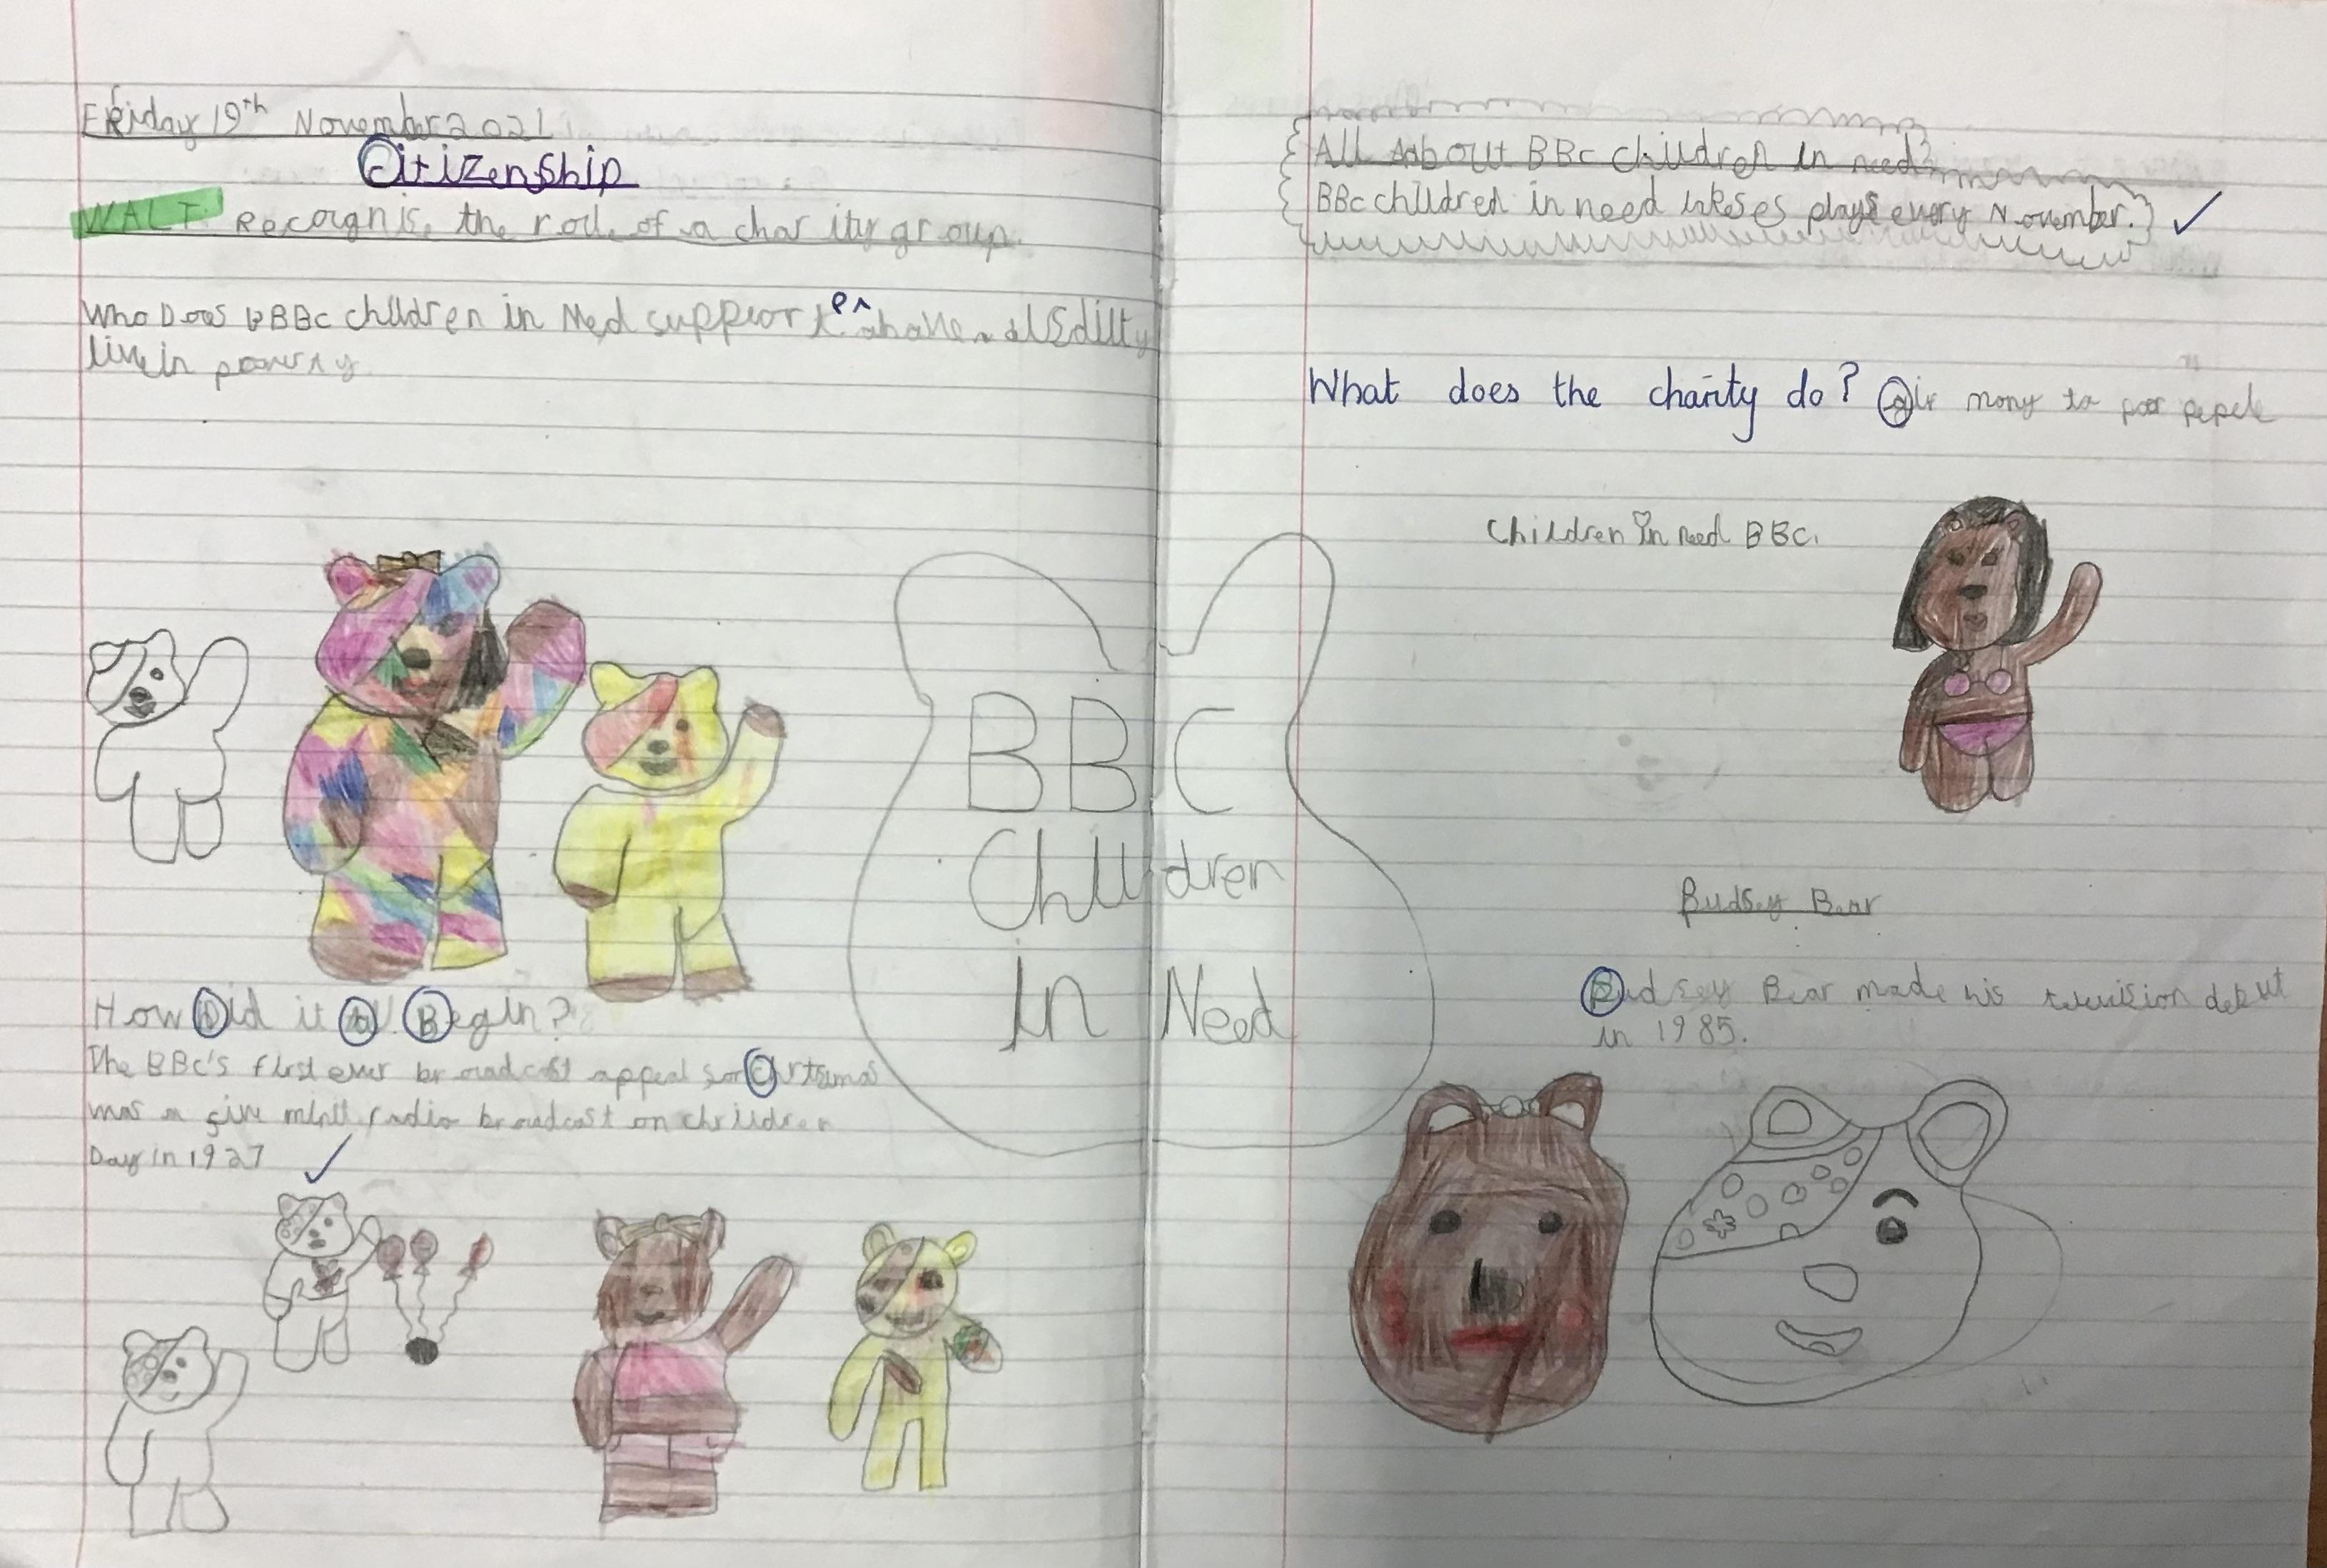 Friday 19th November 2021
Citizenship
WALT: Recognise the role of a charity group.
Who Does BBC children in Need support
live in
How Did it All Begin?
The BBC's first ever broadcast appeal for
was a five radio broadcast on
Day in 1927
BBC
Children
in Need
All About BBC children in need
BBC children in need plays every November.
What does the charity do? mony to poor
Children in need BBC.
Budsey Bear
Budsey Bear made his debut
in 1985.